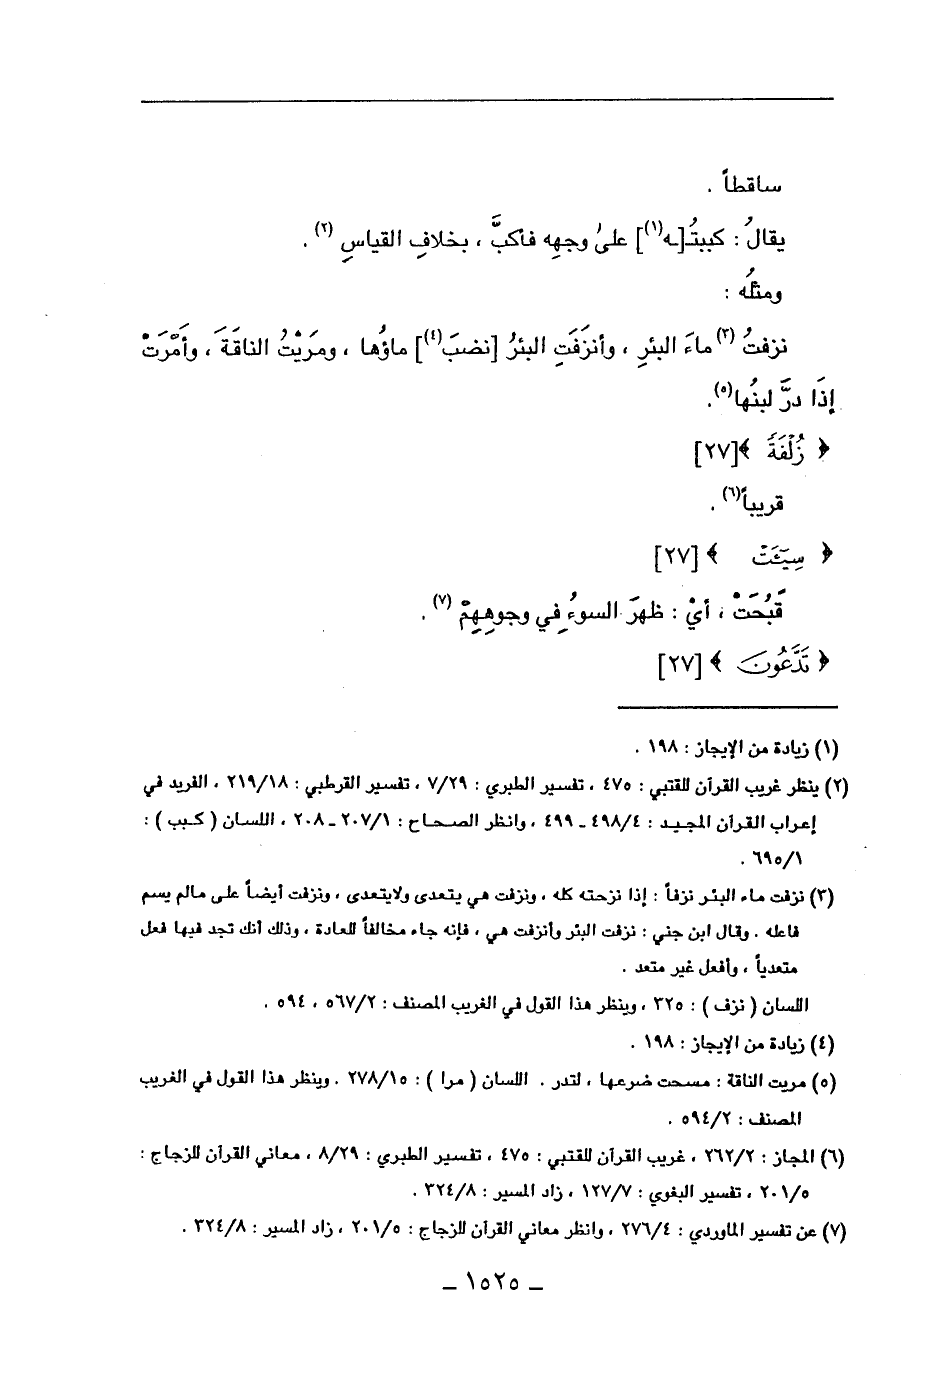 ساقطاً .
يقالُ : كببتُـ[ـه(١)] علىٰ وجهِه فأكبَّ ، بخلافِ القياسِ (٢) .
ومثلُه :
نزفتُ (٣) ماءَ البئرِ ، وأنزَفَتِ البئرُ [نضبَ(٤)] ماؤُها ، ومَرَيْتُ الناقةَ ، وأَمْرَتْ
إِذَا درَّ لبنُها(٥).
﴿ زُلْفَةً ﴾[٢٧]
قريباً(٦) .
﴿ سِيٓـَٔتْ ﴾ [٢٧]
قَبُحَتْ ، أيْ : ظهرَ السوءُ في وجوهِهِمْ (٧) .
﴿ تَدَّعُونَ ﴾ [٢٧]
(١) زيادة من الإيجاز : ١٩٨ .
(٢) ينظر غريب القرآن للقتبي : ٤٧٥ ، تفسير الطبري : ٧/٢٩ ، تفسير القرطبي : ٢١٩/١٨ ، الفريد في
إعراب القرآن المجيد : ٤٩٨/٤ ـ ٤٩٩ ، وانظر الصحاح : ٢٠٧/١ ـ ٢٠٨ ، اللسان ( كبب ) :
٦٩٥/١ .
(٣) نزفت ماء البئر نزفاً : إذا نزحته كله ، ونزفت هي يتعدى ولايتعدى ، ونزفت أيضاً على مالم يسم
فاعله . وقال ابن جني : نزفت البئر وأنزفت هي ، فإنه جاء مخالفاً للعادة ، وذلك أنك تجد فيها فعل
متعدياً ، وأفعل غير متعد .
اللسان ( نزف ) : ٣٢٥ ، وينظر هذا القول في الغريب المصنف : ٥٦٧/٢ ، ٥٩٤ .
(٤) زيادة من الإيجاز : ١٩٨ .
(٥) مريت الناقة : مسحت ضرعها ، لتدر . اللسان ( مرا ) : ٢٧٨/١٥ . وينظر هذا القول في الغريب
المصنف : ٥٩٤/٢ .
(٦) المجاز : ٢٦٢/٢ ، غريب القرآن للقتبي : ٤٧٥ ، تفسير الطبري : ٨/٢٩ ، معاني القرآن للزجاج :
٢٠١/٥ ، تفسير البغوي : ١٢٧/٧ ، زاد المسير : ٣٢٤/٨ .
(٧) عن تفسير الماوردي : ٢٧٦/٤ ، وانظر معاني القرآن للزجاج : ٢٠١/٥ ، زاد المسير : ٣٢٤/٨ .
ـ ١٥٢٥ ـ